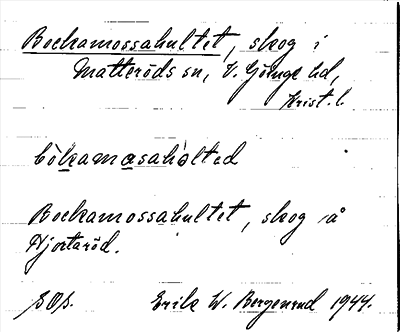 Bockamossahultet, skog i
Matteröds sn, V. Göinge hd,
Krist. l.
bòkamosahòlted
Bockamossahultet, skog å
Hjortaröd.
Erik W. Bergenrud 1944.